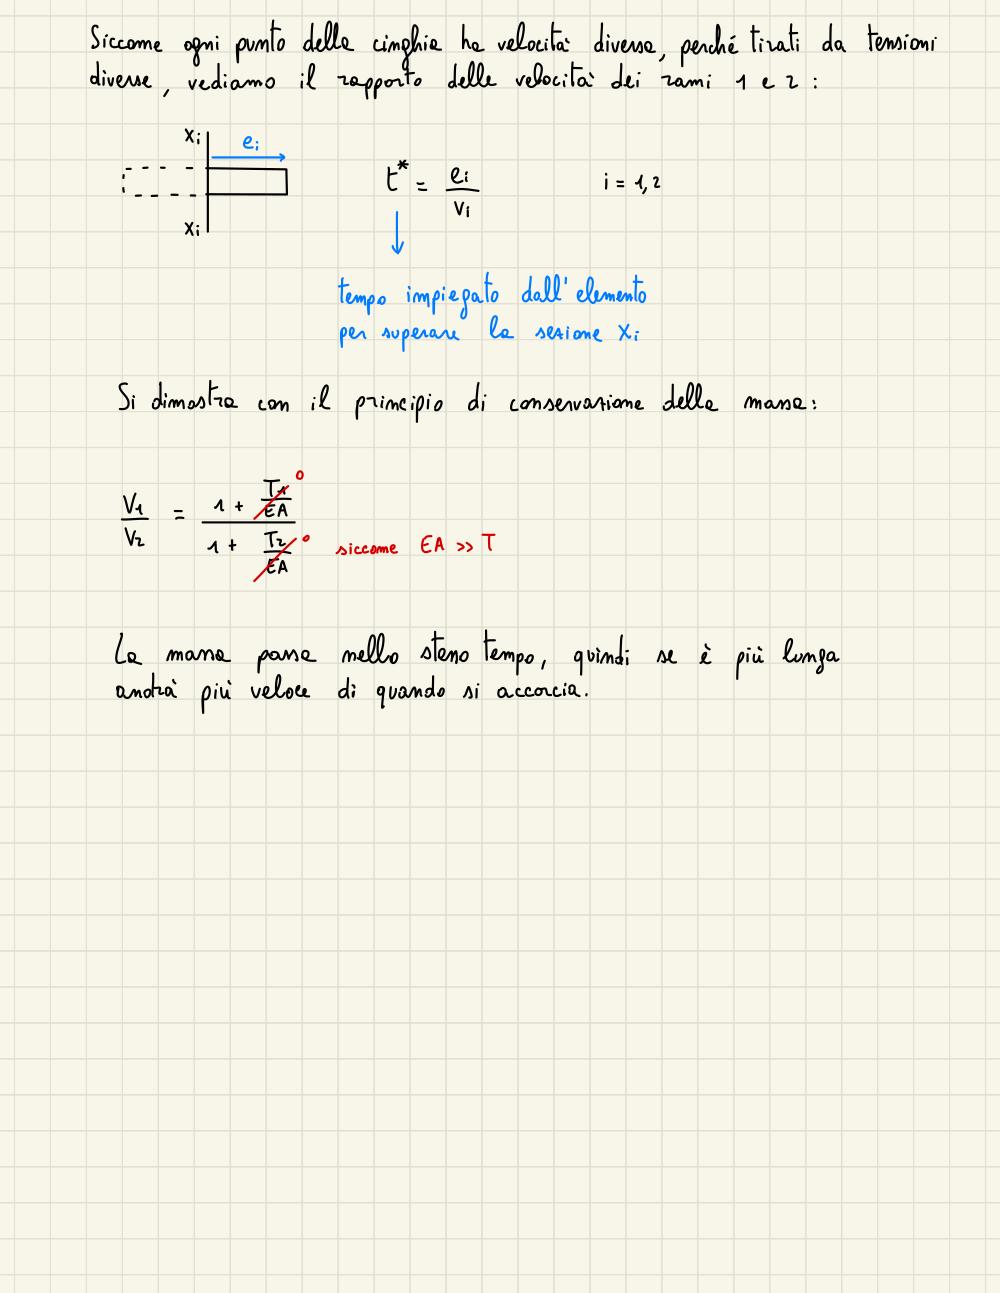 Siccome ogni punto della cinghia ha velocità diversa, perché tirati da tensioni
diverse, vediamo il rapporto delle velocità dei rami 1 e 2 :
xi
ei
xi
t* = ei / vi
i = 1,2
tempo impiegato dall' elemento
per superare la sezione xi
Si dimostra con il principio di conservazione della massa:
V1 / V2 = (1 + T1/EA) / (1 + T2/EA)
0
0
siccome EA >> T
La massa passa nello stesso tempo, quindi se è più lunga
andrà più veloce di quando si accorcia.